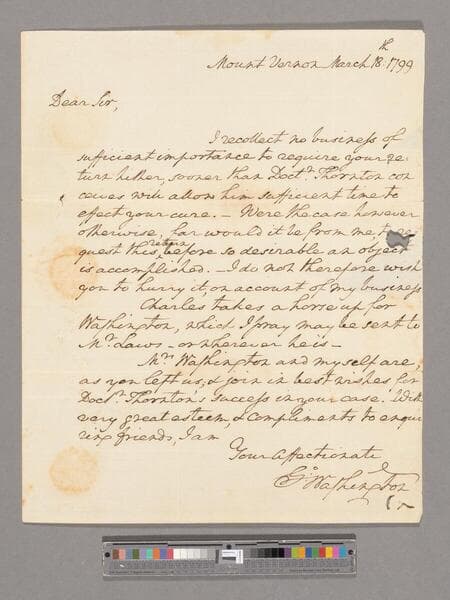 Mount Vernon March 18th 1799
Dear Sir,
I recollect no business of
sufficient importance to require your re-
turn hither, sooner than Doctr. Thornton con
ceives will allow him sufficient time to
effect your cure. – Were the case however
otherwise, far would it be from me, to re-
quest this return before so desirable an object
is accomplished. – I do not therefore wish
you to hurry it, on account of my business
Charles takes a horse up for
Washington, which I pray may be sent to
Mr. Laws – or wherever he is –
Mrs. Washington and myself are,
as you left us, & join in best wishes for
Doctr. Thornton's success in your case. With
very great esteem, & compliments to enqui
ring friends, I am
Your Affectionate
Go: Washington